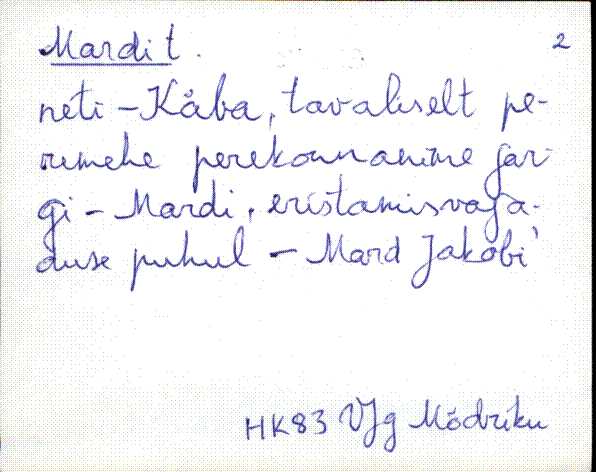 Mardi t. 2
neti – Kåba, tavaliselt pe-
remehe perekonnanime jär-
gi – Mardi, eristamisvaja-
duse puhul – Mard Jakobi'
HK83 VJg Mõdriku